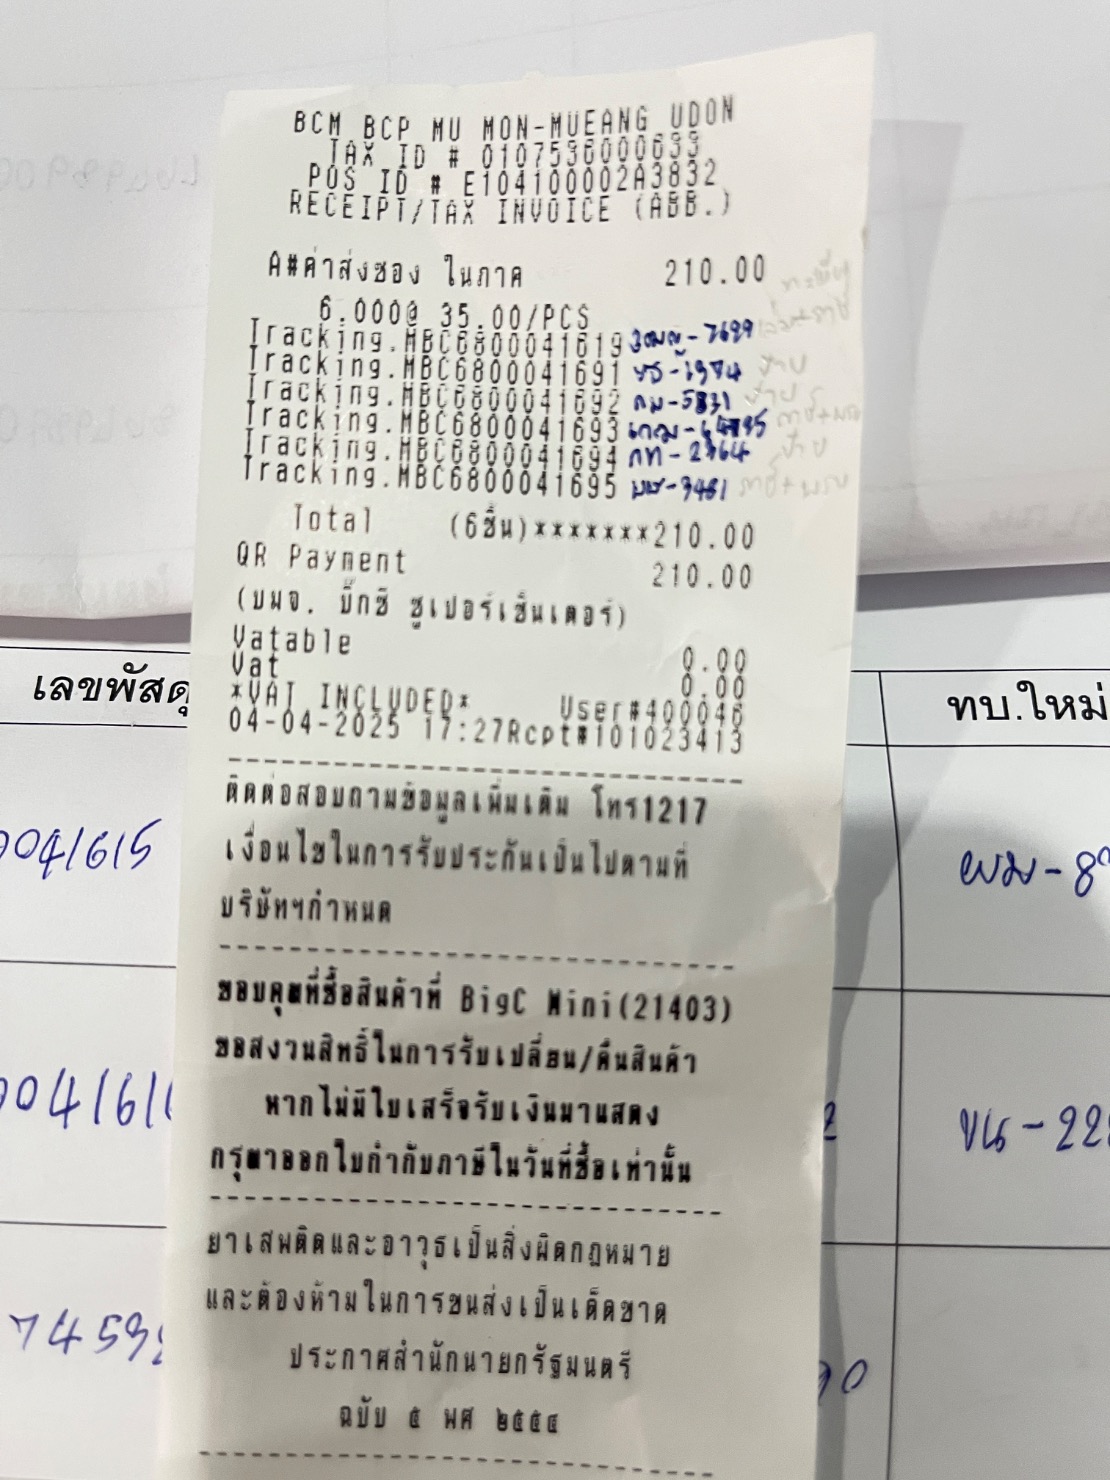 BCM BCP MU MON-MUEANG UDON
TAX ID # 0107536000633
POS ID # E104100002A3832
RECEIPT/TAX INVOICE (ABB.)
A#ค่าส่งซอง ในภาค 210.00
6.000@ 35.00/PCS
Tracking.MBC6800041619
Tracking.MBC6800041691
Tracking.MBC6800041692 กม-5831
Tracking.MBC6800041693
Tracking.MBC6800041694
Tracking.MBC6800041695
Total (6ชิ้น)*******210.00
QR Payment 210.00
(บมจ. บิ๊กซี ซูเปอร์เซ็นเตอร์)
Vatable 0.00
Vat 0.00
*VAT INCLUDED* User#400046
04-04-2025 17:27Rcpt#101023413
ติดต่อสอบถามข้อมูลเพิ่มเติม โทร1217
เงื่อนไขในการรับประกันเป็นไปตามที่
บริษัทฯกำหนด
ขอบคุณที่ซื้อสินค้าที่ BigC Mini(21403)
ขอสงวนสิทธิ์ในการรับเปลี่ยน/คืนสินค้า
หากไม่มีใบเสร็จรับเงินมาแสดง
กรุณาออกใบกำกับภาษีในวันที่ซื้อเท่านั้น
ยาเสพติดและอาวุธเป็นสิ่งผิดกฎหมาย
และต้องห้ามในการขนส่งเป็นเด็ดขาด
ประกาศสำนักนายกรัฐมนตรี
ฉบับ ๕ พศ ๒๕๕๔
เลขพัสดุ
ทบ.ใหม่
0041615
004161
7459
ขน-22